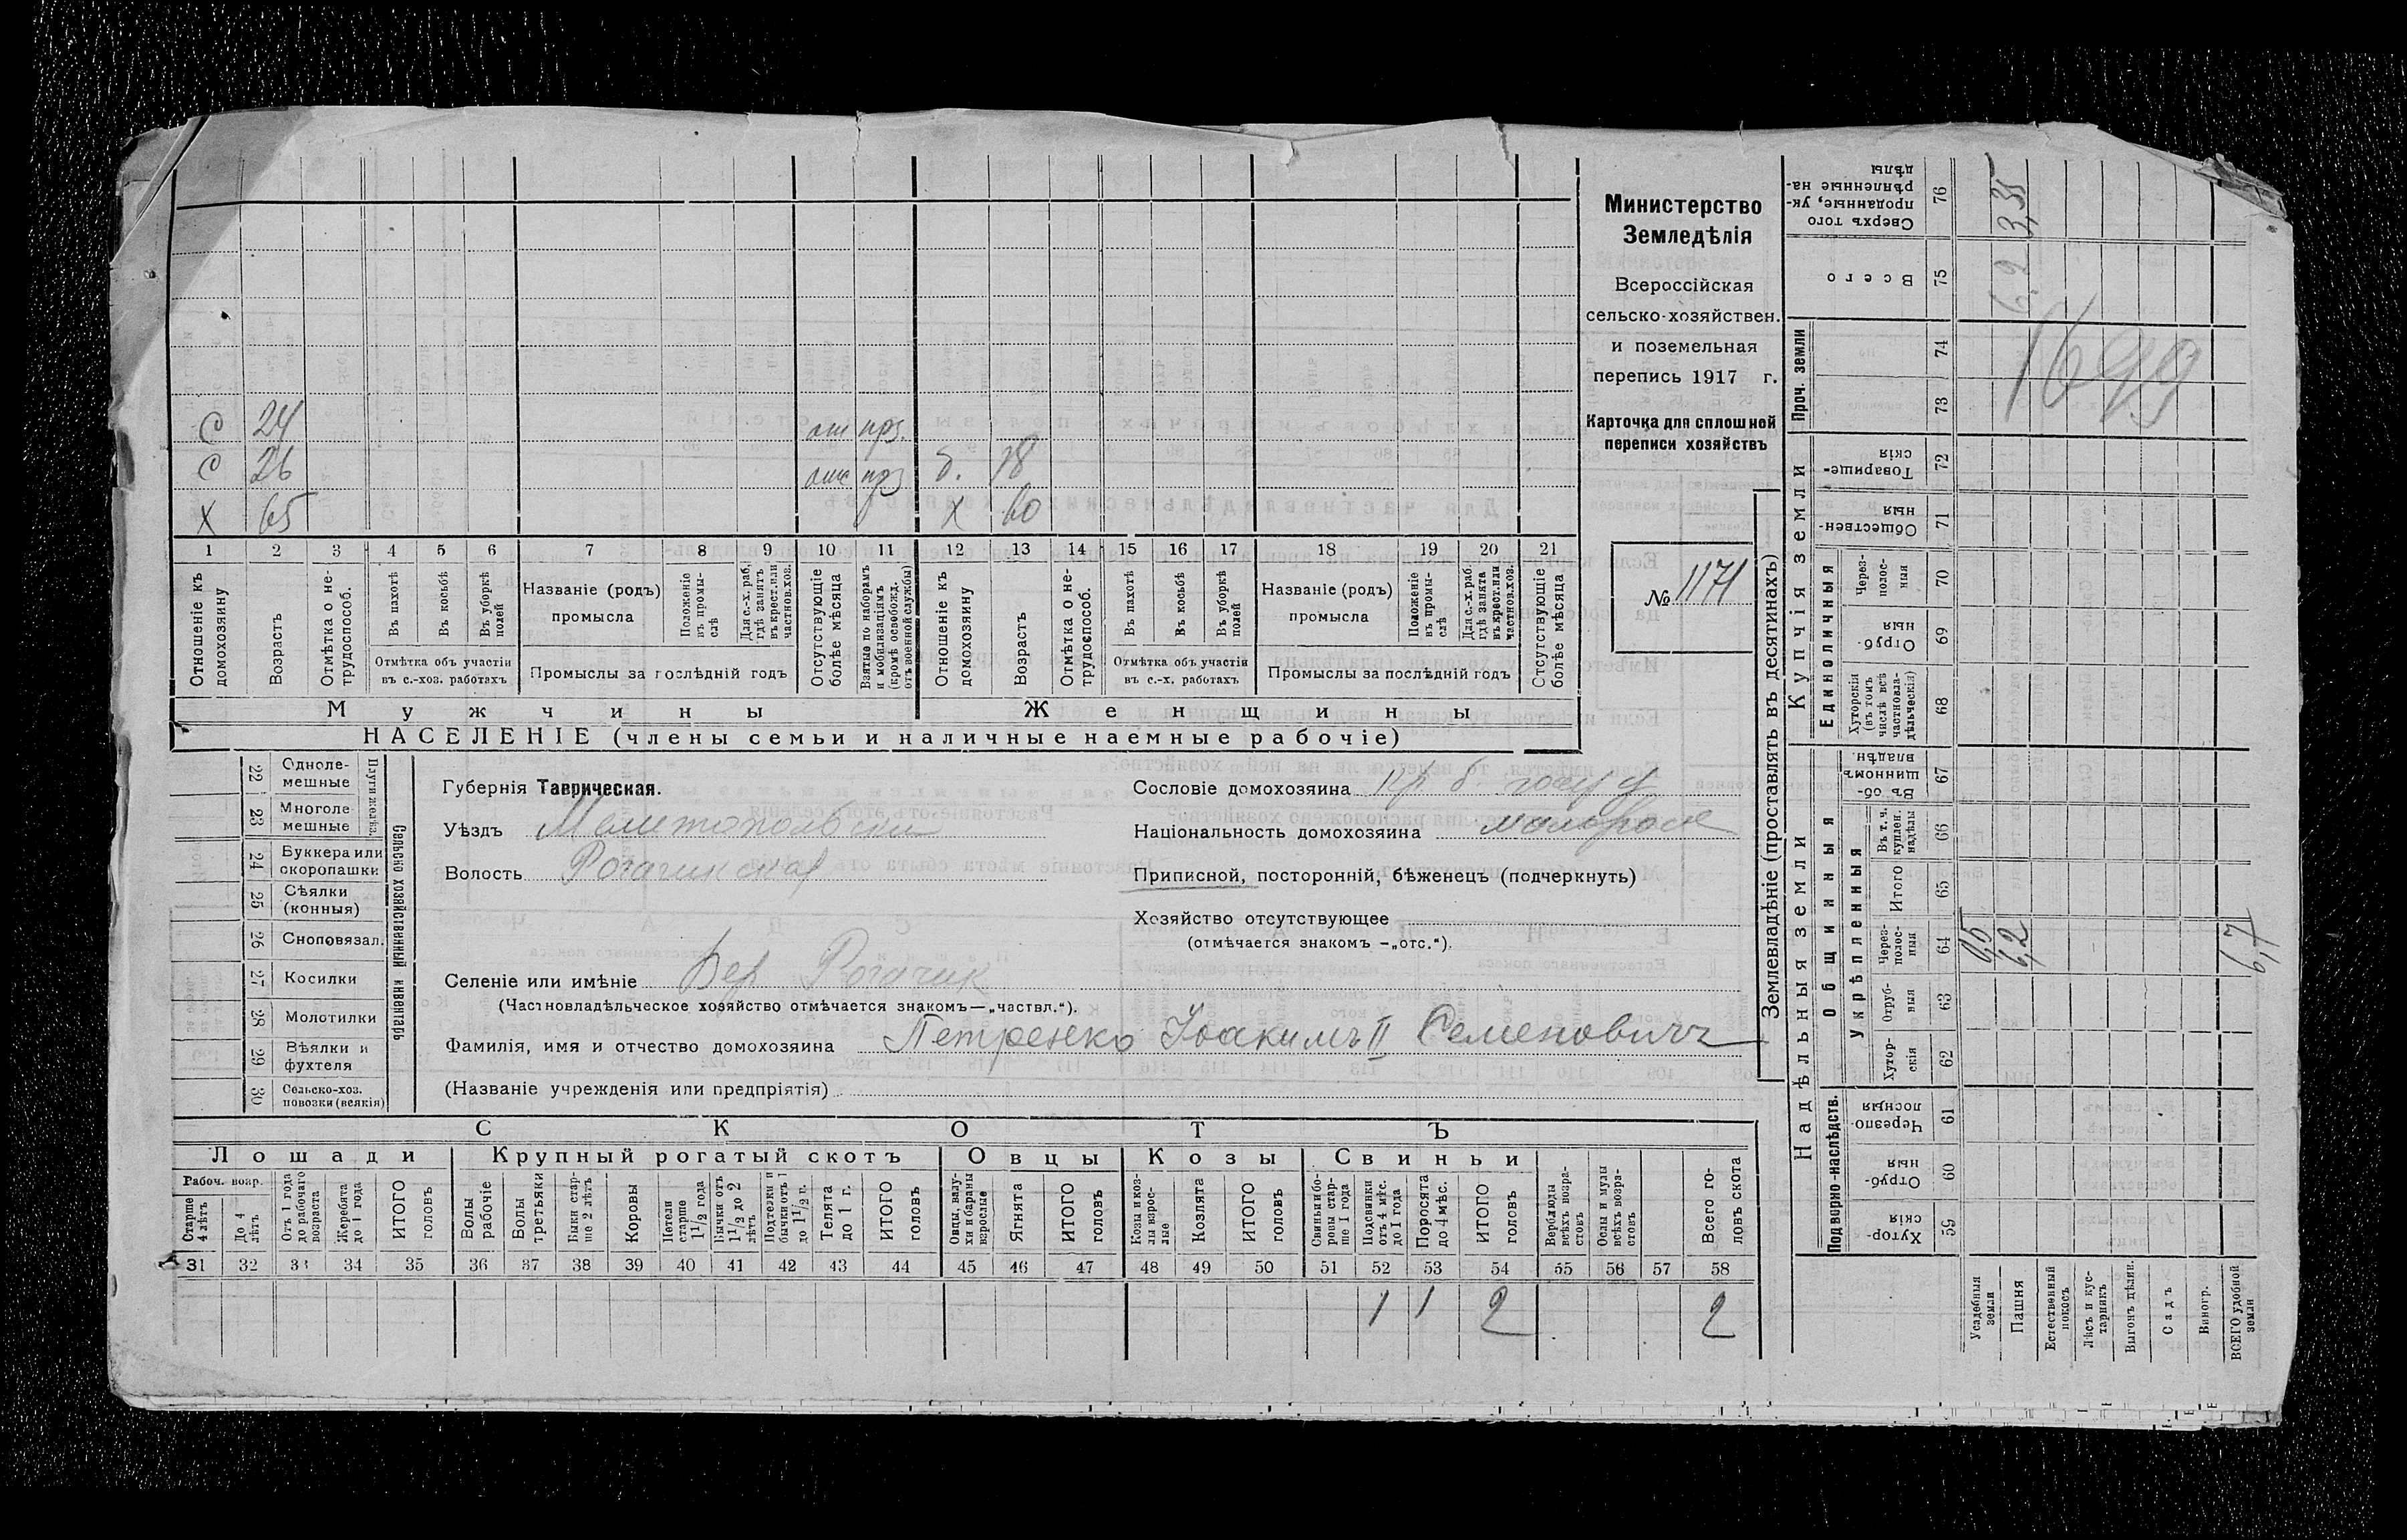 Министерство
Земледѣлія
Всероссійская
сельско-хозяйствен.
и поземельная
перепись 1917 г.
Карточка для сплошной
переписи хозяйствъ
№ 1171
С 24 отс прз.
С 26 отс прз д. 18
Х 65 Х 60
1 2 3 4 5 6 7 8 9 10 11 12 13 14 15 16 17 18 19 20 21
Отношеніе къ домохозяину
Возрастъ
Отмѣтка о нетрудоспособ.
Въ пахотѣ
Въ косьбѣ
Въ уборкѣ полей
Отмѣтка объ участіи въ с.-хоз. работахъ
Названіе (родъ) промысла
Положеніе въ промыслѣ
Для с.-х. раб., гдѣ занятъ въ крест. или частнов. хоз.
Промыслы за послѣдній годъ
Отсутствующіе болѣе мѣсяца
Взятые по наборамъ и мобилизаціямъ (кромѣ освобожд. отъ военной службы)
Отношеніе къ домохозяину
Возрастъ
Отмѣтка о нетрудоспособ.
Въ пахотѣ
Въ косьбѣ
Въ уборкѣ полей
Отмѣтка объ участіи въ с.-х. работахъ
Названіе (родъ) промысла
Положеніе въ промыслѣ
Для с.-х. раб. гдѣ занята въ крест. или частнов. хоз.
Промыслы за послѣдній годъ
Отсутствующіе болѣе мѣсяца
Мужчины Женщины
НАСЕЛЕНІЕ (члены семьи и наличные наемные рабочіе)
22 Одноле-мешные
23 Многоле-мешные
Плуги желѣз.
24 Буккера или скоропашки
25 Сѣялки (конныя)
26 Сноповязал.
27 Косилки
28 Молотилки
29 Вѣялки и фухтеля
30 Сельско-хоз. повозки (всякія)
Сельско хозяйственный инвентарь
Губернія Таврическая.
Уѣздъ Мелитопольскій
Волость Рогачинская
Сословіе домохозяина кр. б. госуд
Національность домохозяина малоросс
Приписной, посторонній, бѣженецъ (подчеркнуть)
Хозяйство отсутствующее
(отмѣчается знакомъ —„отс.“).
Селеніе или имѣніе Вер Рогачик
(Частновладѣльческое хозяйство отмѣчается знакомъ—„частвл.“).
Фамилія, имя и отчество домохозяина Петренко Іоакимъ II Семеновичъ
(Названіе учрежденія или предпріятія)
СКОТЪ
Лошади Крупный рогатый скотъ Овцы Козы Свиньи
Рабоч. возр.
Старше 4 лѣтъ
До 4 лѣтъ
Отъ 1 года до рабочаго возраста
Жеребята до 1 года
ИТОГО головъ
Волы рабочіе
Волы третьяки
Быки старше 2 лѣтъ
Коровы
Нетели старше 1 1/2 года
Бычки отъ 1 1/2 до 2 лѣтъ
Подтелки и бычки отъ 1 до 1 1/2 г.
Телята до 1 г.
ИТОГО головъ
Овцы, валухи и бараны взрослые
Ягнята
ИТОГО головъ
Козы и козлы взрослые
Козлята
ИТОГО головъ
Свиньи и боровы старше 1 года
Подсвинки отъ 4 мѣс. до 1 года
Поросята до 4 мѣс.
ИТОГО головъ
Верблюды всѣхъ возрастовъ
Ослы и мулы всѣхъ возрастовъ
Всего головъ скота
31 32 33 34 35 36 37 38 39 40 41 42 43 44 45 46 47 48 49 50 51 52 53 54 55 56 57 58
1 1 2 2
Землевладѣніе (проставлять въ десятинахъ)
Надѣльныя земли Купчія земли Проч. земли
Подворно-наслѣдств. Общинныя Единоличныя
Укрѣпленныя
Хуторскія 59
Отрубныя 60
Черезполосныя 61
Хуторскія 62
Отрубныя 63
Черезполосныя 64
Итого 65
Въ т. ч. куплен. надѣлы 66
Въ общинномъ владѣн. 67
Хуторскія (въ томъ числѣ всѣ частновладѣльческія) 68
Отрубныя 69
Черезполосныя 70
Общественныя 71
Товарищескія 72
73
74
Всего 75
Сверхъ того проданные, укрѣпленные надѣлы 76
Усадебныя земли
Пашня
Естественный покосъ
Лѣсъ и кустарникъ
Выгонъ цѣлин.
Садъ
Виногр.
ВСЕГО удобной земли
0,5
6,2
6,7
6,2
3,35
1699